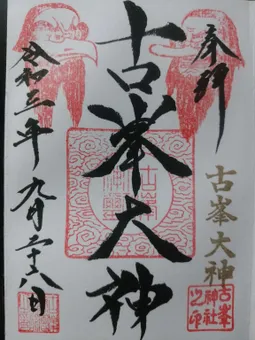 奉拝
古峯大神
古峯
神社
之印
古峯大神
令和三年 九月二十八日